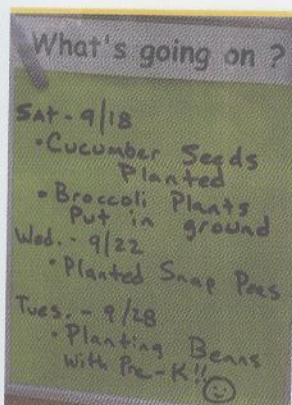 What's going on ?
SAT - 9/18
• Cucumber Seeds
Planted
• Broccoli Plants
Put in ground
Wed. - 9/22
• Planted Snap Peas
Tues. - 9/28
• Planting Beans
with Pre-K!!